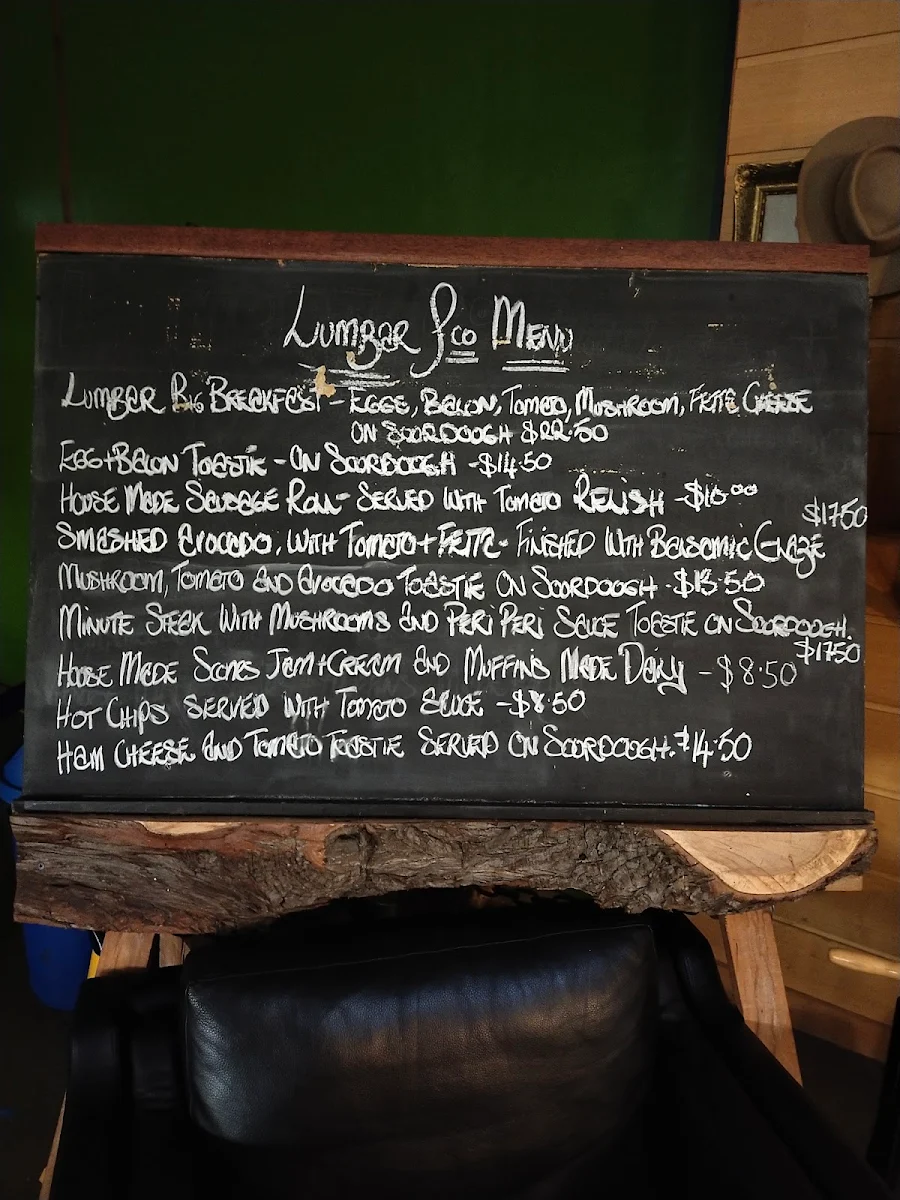 LUMBER & CO MENU
LUMBER BIG BREAKFAST - EGGS, BACON, TOMATO, MUSHROOM, FETTA CHEESE
ON SOORDOOGH $22.50
EGG + BACON TOASTIE - ON SOORDOOGH - $14.50
HOUSE MADE SAUSAGE ROLL - SERVED WITH TOMATO RELISH - $10.00
$17.50
SMASHED AVOCADO, WITH TOMATO + FETTA - FINISHED WITH BALSAMIC GLAZE
MUSHROOM, TOMATO AND AVOCADO TOASTIE ON SOORDOOGH - $15.50
MINUTE STEAK WITH MUSHROOMS AND PERI PERI SAUCE TOASTIE ON SOORDOOGH.
$17.50
HOUSE MADE SCONES JAM + CREAM AND MUFFINS MADE DAILY - $8.50
HOT CHIPS SERVED WITH TOMATO SAUCE - $8.50
HAM CHEESE AND TOMATO TOASTIE SERVED ON SOORDOOGH. $14.50